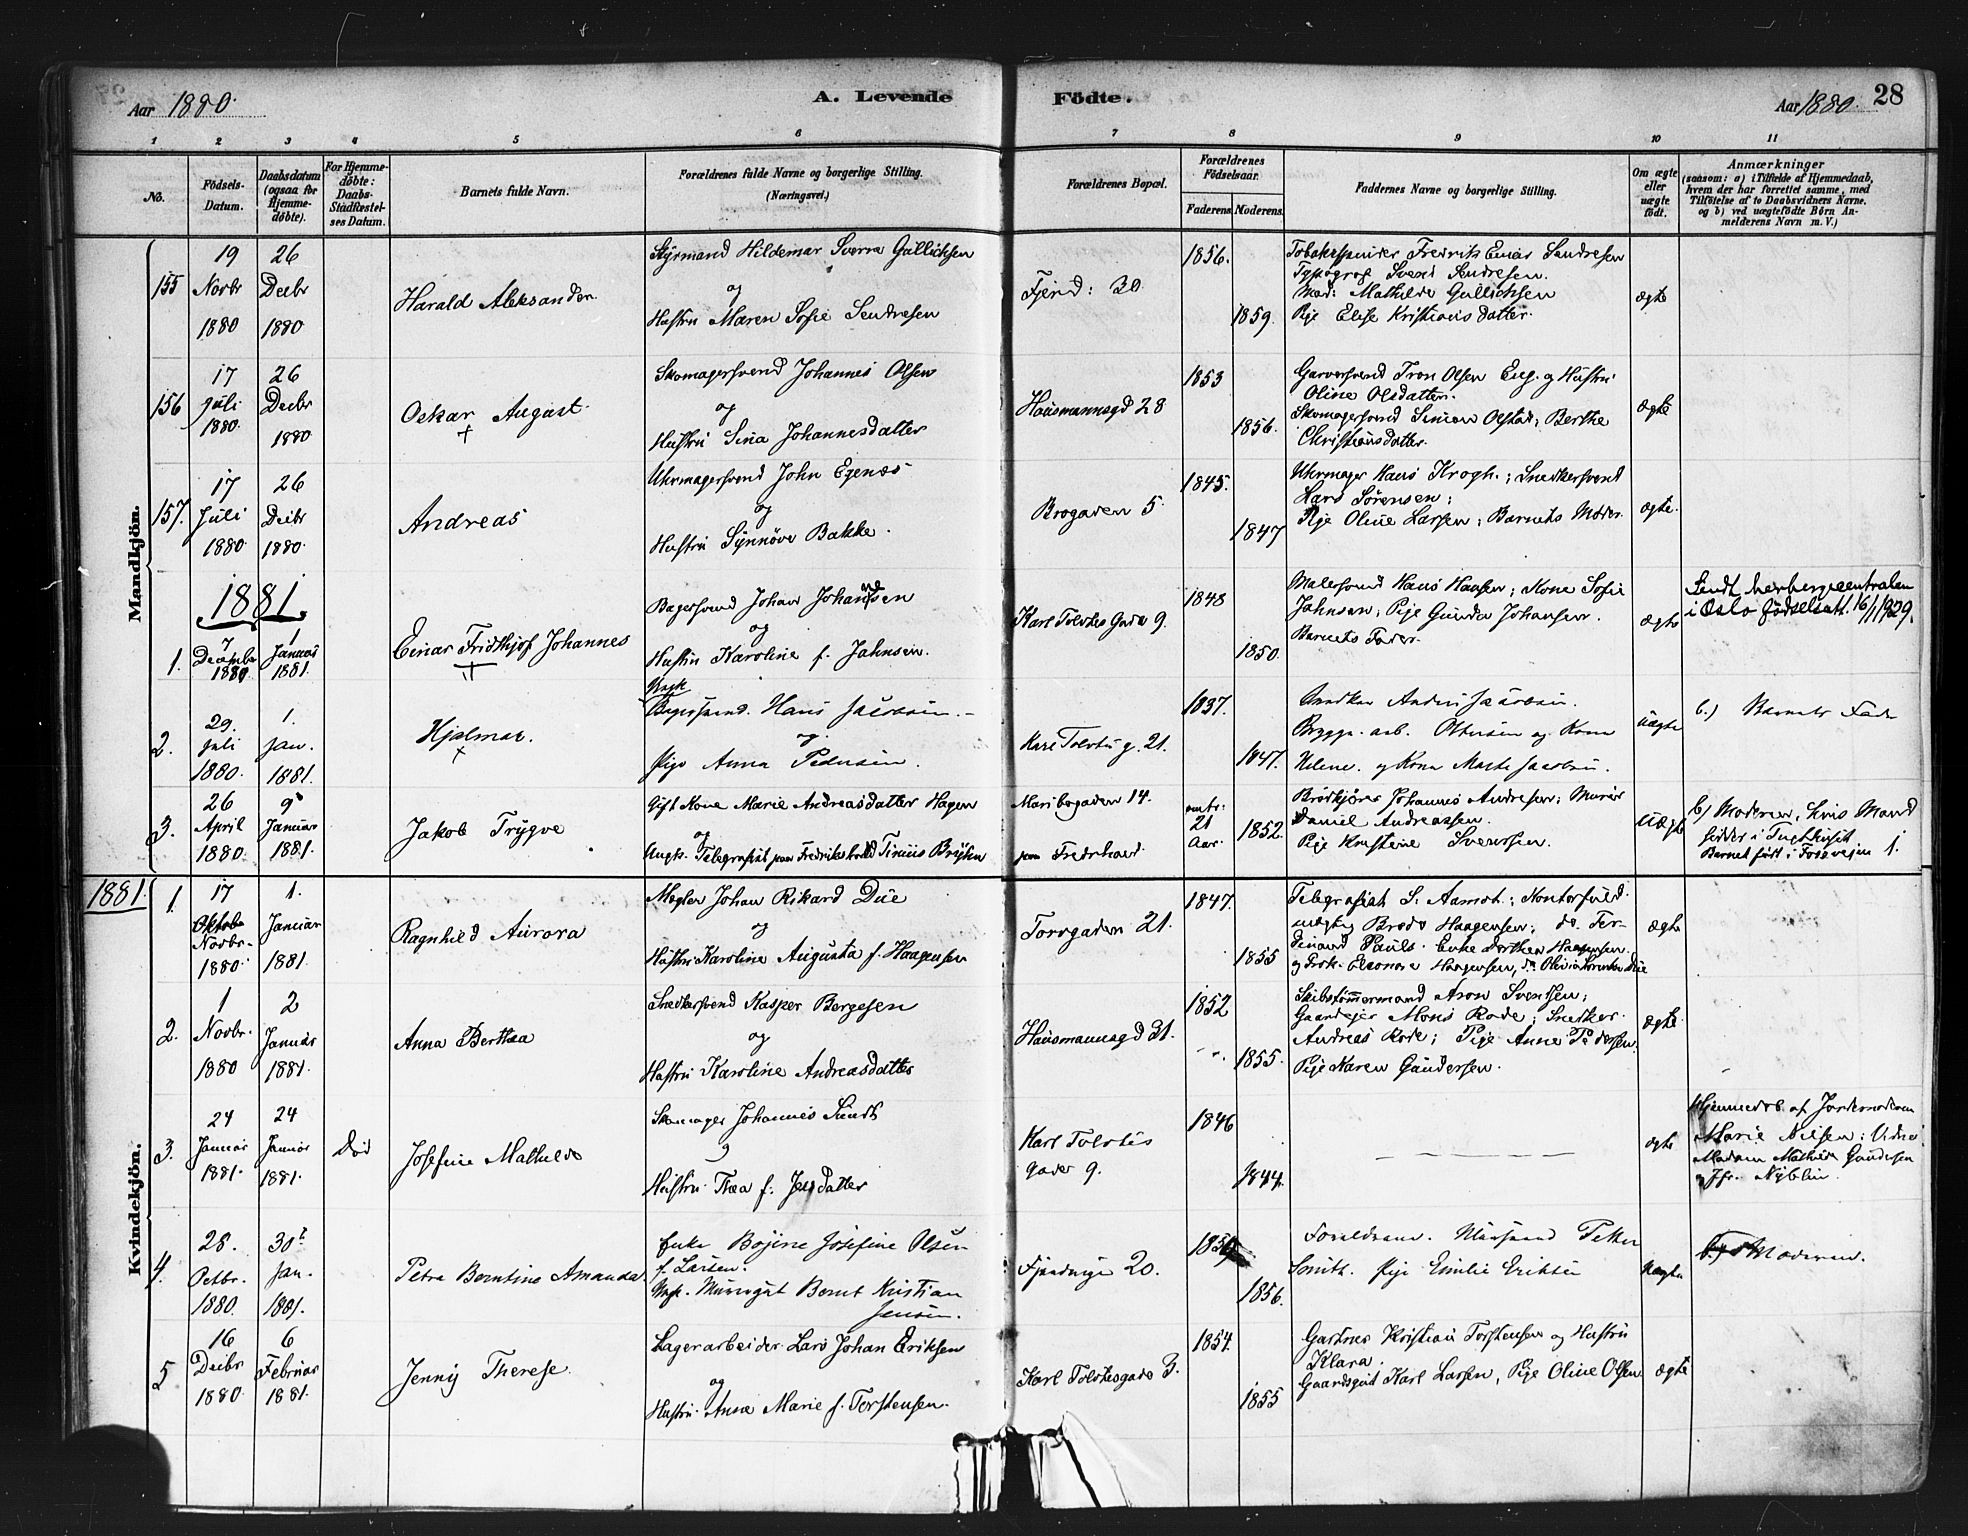 Aar 1880.
A. Levende Födte.
Aar 1880. 28
1 2 3 4 5 6 7 8 9 10 11
No.
Födsels-Datum.
Daabsdatum (ogsaa for Hjemmedöbte).
For Hjemmedöbte: Daabs-Stadfæstelses Datum.
Barnets fulde Navn.
Forældrenes fulde Navne og borgerlige Stilling. (Næringsvei.)
Forældrenes Bopæl.
Forældrenes Födselsaar.
Faderens. Moderens.
Faddernes Navne og borgerlige Stilling.
Om ægte eller uægte födt.
Anmærkninger
(saasom: a) i Tilfælde af Hjemmedaab, hvem der har forrettet samme, med Tilföielse af to Daabsvidners Navne. og b) ved uægtefödte Börn Anmelderens Navn m. V.)
Mandkjön.
155
19 Novbr 1880
26 Decbr 1880
Harald Aleksander.
Styrmand Hildemar Sverre Gullichsen
og
Hustru Maren Sofie Sendresen
Fjerd: 30
1856.
1859.
Tobakspinder Fredrik Einar Sendresen
Typograf Svend Sendresen.
Mad: Mathilde Gullichsen
Pige Elise Kristiansdatter.
ægte
156
17 Juli 1880.
26 Decbr 1880
Oskar August.
Skomagersvend Johannes Olsen
og
Hustru Sina Johannesdatter
Hausmannsgd 28
1853
1856.
Garversvend Tron Olsen Eng. og Hustru
Oline Olsdatter.
Skomagersvend Simon Olstad; Berthe
Christiansdatter.
ægte
157.
17 Juli 1880
26 Decbr 1880.
Andreas
Uhrmagersvend John Egenæs
og
Hustru Synnöve Bakke.
Brogaden 5.
1845.
1847
Uhrmager Hans Krogh.; Snedkersvend
Lars Sörensen;
Pige Oline Larsen; Barnets Moder.
ægte.
1881.
1.
7 December 1880
1 Januar 1881.
Einar Fridthjof Johannes
Bagersvend Johan Johansen
og
Hustru Karoline f. Jahnsen.
Karl Tolvtes Gade 9.
1848
1850.
Malersvend Hans Hansen; Kone Sofie
Jahnsen; Pige Gunda Johansen.
Barnets Fader.
ægte
Sendt herbergecentralen
i Oslo födselsatt. 16/1 1929.
2.
29. Juli 1880.
1. Jan. 1881.
Hjalmar.
Ungk
Bagersvend. Hans Jacobsen.
og
Pige Anna Pedersen.
Karl Tolvtes g. 21.
1837.
1847.
Snedker Anders Jacobsen.
Brygge. arb. Ottersen og Kone
Helene. og Kone Marte Jacobsen.
uægte
b.) Barnets Fader
3.
26 April 1880.
9 Januar 1881.
Jakob Trygve
Gift Kone Marie Andreasdatter Hagen
og
Ungk. Telegrafist paa Fredrikshald Tinius Brÿhn
Maribogaden 14.
paa Fredrhald
omtr: 21 Aar.
1852.
Brödkjörer Johannes Andresen; Murer
Daniel Andreassen.
Pige Kristine Svensen.
Uægte
b) Moderen, hvis Mand
sidder i Tugthuset
Barnet födt i Fossvejen 1.
1881.
Kvindekjön.
1.
17 Oktobr Novbr. 1880.
1. Januar 1881.
Ragnhild Aurora
Mægler Johan Rikard Due
og
Hustru Karoline Augusta f. Haagensen
Torvgaden 21.
1847.
1855
Telegrafist S. Aamot.; Kontorfuld-
mægtig Brede Haagensen; do. Fer-
dinand Pauls. Enke Dorthea Haagensen.
og Frok. Eleonore Haagensen, do. Olivia Due
ægte
2.
1 Novbr. 1880
2 Januar 1881.
Anna Berthea
Snedkersvend Kasper Bergesen
og
Hustru Karoline Andreasdatter
Hausmannsgd 31.
1852
1855.
Skibstömmermand Aron Svensen;
Gaardejer Mons Rode; Snedker
Andreas Rode; Pige Anne Pedersen.
Pige Karen Gundersen.
ægte.
3.
24 Januar 1881.
24 Januar 1881.
Död
Josefine Mathilde
Skomager Johannes Sundt
og
Hustru Thea f. Jensdatter
Karl Tolvtes gade 9.
1846
1844.
ægte
Hjemmedöb. af Jordemoderen
Marie Nilsen: Vidne
Madam Mathilde Gundersen
og Jfr. Nyblin.
4.
28. Octbr. 1880.
30t Jan. 1881.
Petra Berntine Amanda.
Enke Bojine Josefine Olsen
f. Larsen.
Ungk. Murergut Bernt Kristian
Jensen.
1856.
Forældrene. Mursvend Petter
Smith. Pige Emilie Eriksen
Uægte
Moderen.
5
16 Decbr 1880
6 Februar 1881.
Jenny Therese.
Lagerarbeider Lars Johan Eriksen
og
Hustru. Anna Marie f. Torstensen.
Karl Tolvtesgade 3.
1854.
1855
Gartner Kristian Torstensen og Hustru
Klara.
Gaardsgut Karl Larsen, Pige Oline Olsen
ægte